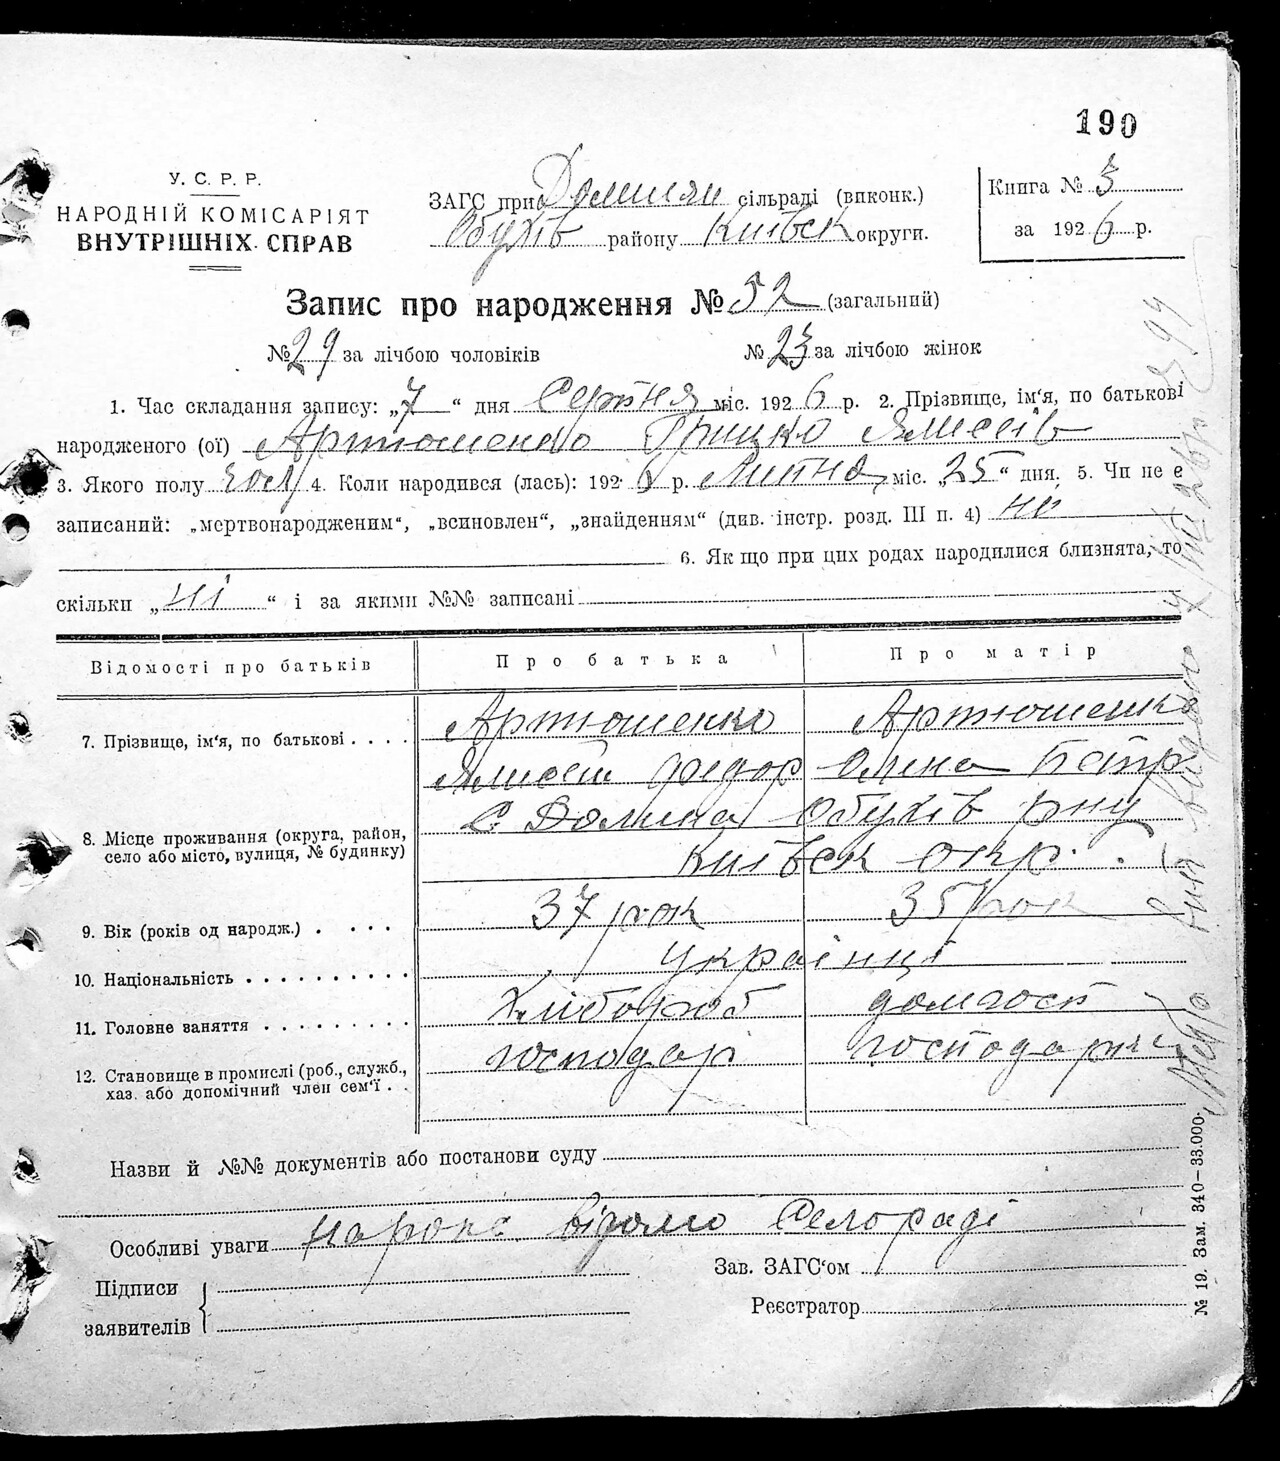 190
У. С. Р. Р.
НАРОДНІЙ КОМІСАРІЯТ
ВНУТРІШНІХ СПРАВ
ЗАГС при Долинян сільраді (виконк.)
Обухів району Київск округи.
Книга № 3
за 1926 р.
Запис про народження № 52 (загальний)
№ 29 за лічбою чоловіків № 23 за лічбою жінок
1. Час складання запису: „7“ дня Серпня міс. 1926 р. 2. Прізвище, ім‘я, по батькові
народженого (ої) Артюшенко Грицко Ялисеїв
3. Якого полу чол 4. Коли народився (лась): 1926 р. Липня міс. „25“ дня. 5. Чи не є
записаний: „мертвонародженим“, „всиновлен“, „знайденням“ (див. інстр. розд. III п. 4) ні
6. Як що при цих родах народилися близнята, то
скільки „ні“ і за якими №№ записані
Відомості про батьків Про батька Про матір
7. Прізвище, ім‘я, по батькові . . . . Артюшенко Артюшенко
Ялисей Федор Олена Петр
8. Місце проживання (округа, район, село або місто, вулиця, № будинку) С. Долина Обухів рну
Київск окр.
9. Вік (років од народж.) . . . . 37 рок 35 рок
10. Національність . . . . . . . . . . українці
11. Головне заняття . . . . . . . . . Хлібороб домгосп
12. Становище в промислі (роб., служб., хаз. або допомічний член сем‘ї . . господар господарка
Назви й №№ документів або постанови суду
Особливі уваги відомо Селораді
Підписи
заявителів
Зав. ЗАГС‘ом
Реєстратор
№ 19. Зам. 340—33.000.